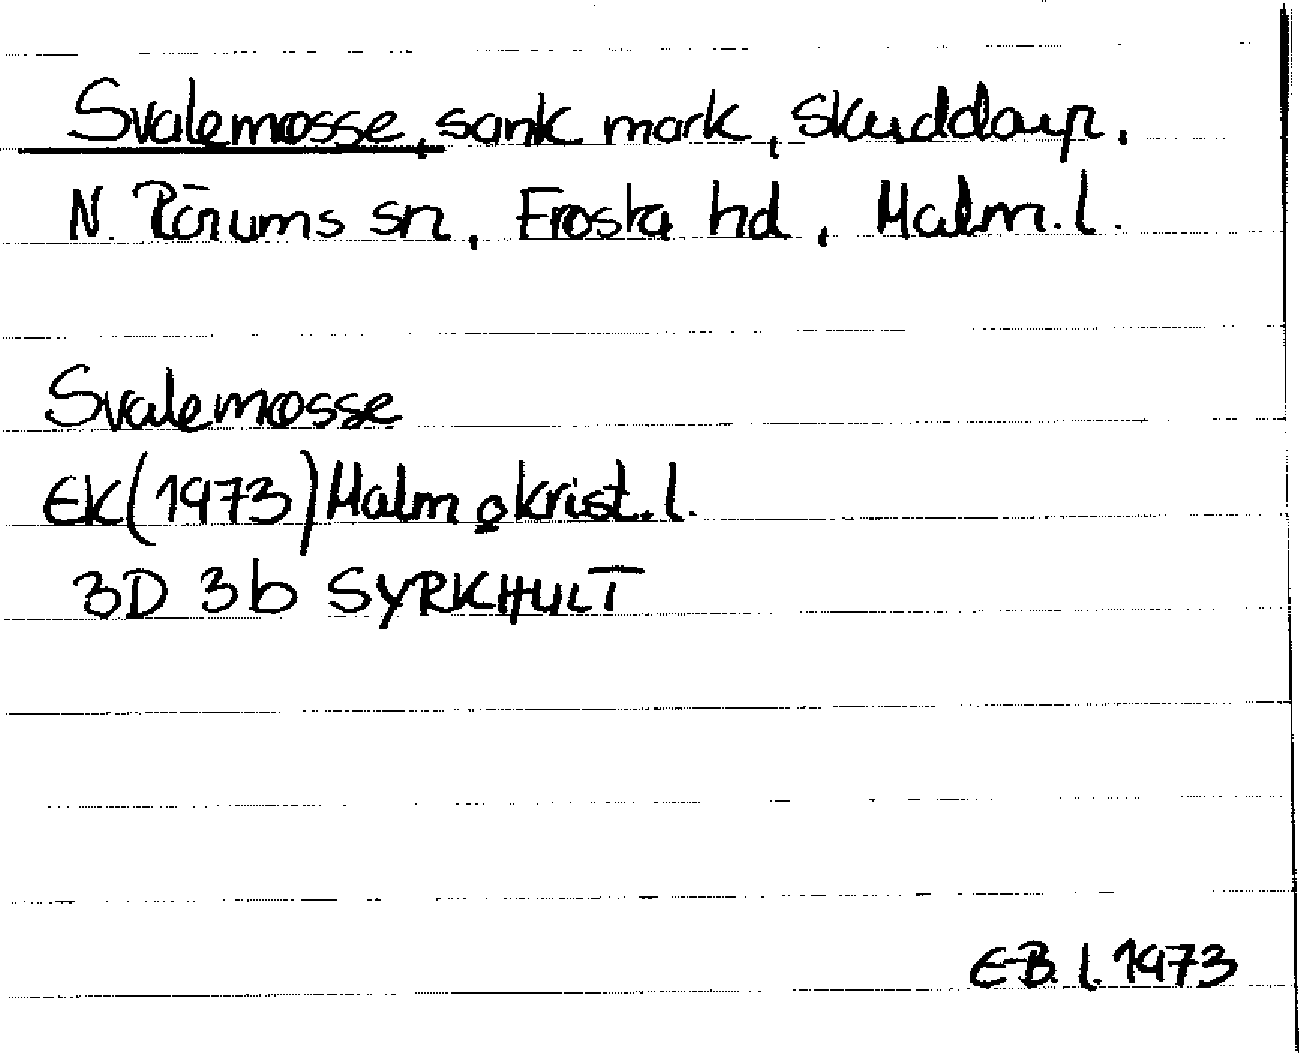 Svalemosse, sank mark, Skuddarp.
N. Rörums sn, Frosta hd, Malm. l.
Svalemosse
EK(1973) Malm o krist. l.
3D 3b SYRKHULT
E-B. l. 1973